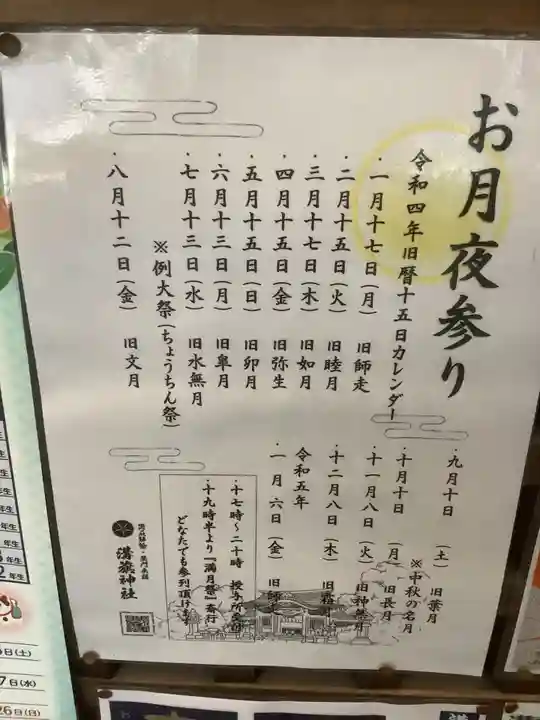 お月夜参り
令和四年旧暦十五日カレンダー
・一月十七日(月) 旧師走
・二月十五日(火) 旧睦月
・三月十七日(木) 旧如月
・四月十五日(金) 旧弥生
・五月十五日(日) 旧卯月
・六月十三日(月) 旧皐月
・七月十三日(水) 旧水無月
※例大祭(ちょうちん祭)
・八月十二日(金) 旧文月
・九月十日(土) 旧葉月
※中秋の名月
・十月十日(月) 旧長月
・十一月八日(火) 旧神無月
・十二月八日(木) 旧霜月
令和五年
・一月六日(金) 旧師走
・十七時〜二十時 授与所交付
・十九時半より『満月祭』斎行
どなたでも参列頂けます
溝旗神社
年生
年生
年生
年生
2年生
日(土)
7日(水)
26日(日)